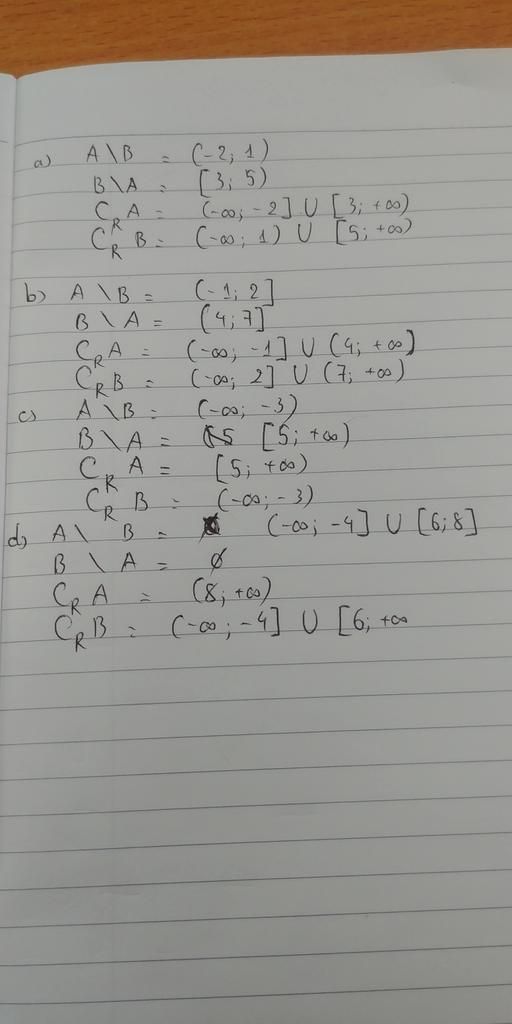 a) A \ B = (-2; 1)
B \ A = [3; 5)
C_R A = (-∞; -2] ∪ [3; +∞)
C_R B = (-∞; 1) ∪ [5; +∞)
b) A \ B = (-1; 2]
B \ A = (4; 7]
C_R A = (-∞; -1] ∪ (4; +∞)
C_R B = (-∞; 2] ∪ (7; +∞)
c) A \ B = (-∞; -3)
B \ A = [5; +∞)
C_R A = [5; +∞)
C_R B = (-∞; -3)
d) A \ B = (-∞; -4] ∪ [6; 8]
B \ A = ∅
C_R A = (8; +∞)
C_R B = (-∞; -4] ∪ [6; +∞